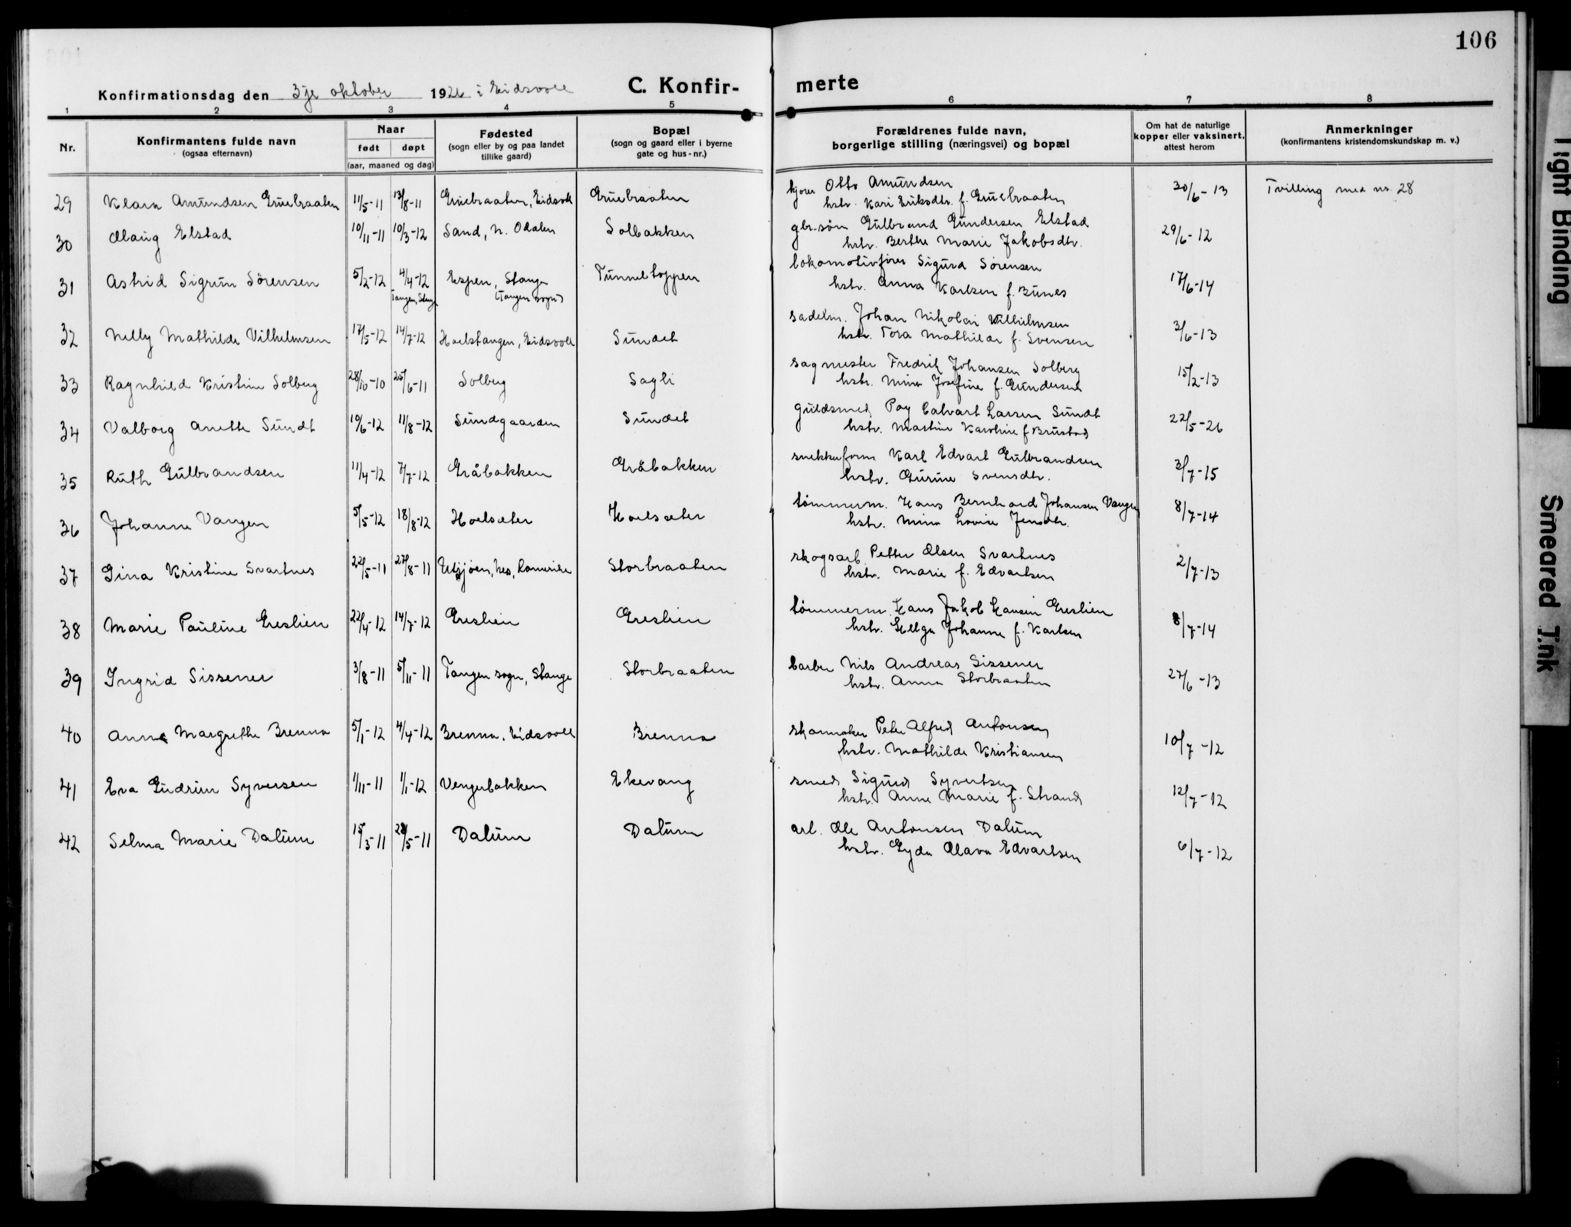 106
Konfirmationsdag den 3je oktober 1926 i Eidsvoll
C. Konfir- merte
1 2 3 4 5 6 7 8
Nr.
Konfirmantens fulde navn
(ogsaa efternavn)
Naar
født døpt
(aar, maaned og dag)
Fødested
(sogn eller by og paa landet
tillike gaard)
Bopæl
(sogn og gaard eller i byerne
gate og hus-nr.)
Forældrenes fulde navn,
borgerlige stilling (næringsvei) og bopæl
Om hat de naturlige
kopper eller vaksinert,
attest herom
Anmerkninger
(konfirmantens kristendomskundskap m. v.)
29 Klara Amundsen Gruebraaten 11/5-11 13/8-11 Gruebraaten, Eidsvoll Gruebraaten kjører Otto Amundsen 30/6-13 Tvilling med nr 28
hstr. Kari Eriksdtr. f. Gruebraaten
30 Olaug Elstad 10/11-11 10/3-12 Sand, N. Odalen Solbakken gbr.søn Gulbrand Gundersen Elstad 29/6-12
hstr. Berthe Marie Jakobsdtr.
31 Astrid Sigrun Sørensen 5/2-12 4/4-12 Espen, Stange Tunneltoppen lokomotivfører Sigurd Sørensen 17/6-14
Tangen, Stange (Tangen sogn) hstr. Anna Karlsen f. Bunes
32 Nelly Mathilde Vilhelmsen 17/5-12 14/7-12 Hoelstangen, Eidsvoll Sundet sadelm. Johan Nikolai Vilhelmsen 3/6-13
hstr. Tora Mathilde f. Svensen
33 Ragnhild Kristine Solberg 28/10-10 25/6-11 Solberg Sagli sagmester Fredrik Johansen Solberg 15/2-13
hstr. Mina Josefine f. Gundersen
34 Valborg Anette Sundt 10/6-12 11/8-12 Sundgaarden Sundet guldsmed Pay Calvart Larsen Sundt 22/5-26
hstr. Martine Karoline f. Brustad
35 Ruth Gulbrandsen 11/4-12 7/7-12 Gråbakken Gråbakken snekkerform Karl Edvart Gulbrandsen 3/7-15
hstr. Gurine Svensdtr.
36 Johanne Vangen 5/5-12 18/8-12 Hoelsæter Hoelsæter tømmerm. Hans Bernhard Johansen Vangen 8/7-14
hstr. Mina Lovise Jensdtr.
37 Gina Kristine Svartnes 22/5-11 27/8-11 Utsjøen, Nes, Romerike Storbraaten skogsarb. Petter Olsen Svartnes 2/7-13
hstr. Marie f. Edvartsen
38 Marie Pauline Greslien 22/4-12 14/7-12 Greslien Greslien tømmerm. Hans Jakob Hansen Greslien 8/7-14
hstr. Helga Johanne f. Karlsen
39 Ingrid Sissener 3/8-11 5/11-11 Tangen sogn, Stange Storbraaten barber Nils Andreas Sissener 27/6-13
hstr. Anna Storbraaten
40 Anna Margrethe Brenna 5/1-12 4/4-12 Brenna, Eidsvoll Brenna skomaker Peter Alfred Antonsen 10/7-12
hstr. Mathilde Kristiansen
41 Eva Gudrun Syversen 1/11-11 1/1-12 Vengebakken Ekevang smed Sigurd Syvertsen 12/7-12
hstr. Anne Marie f. Strand
42 Selma Marie Dalum 15/3-11 28/5-11 Dalum Dalum arb. Ole Antonsen Dalum 6/7-12
hstr. Gyda Olava Edvartsen
Tight Binding
Smeared Ink